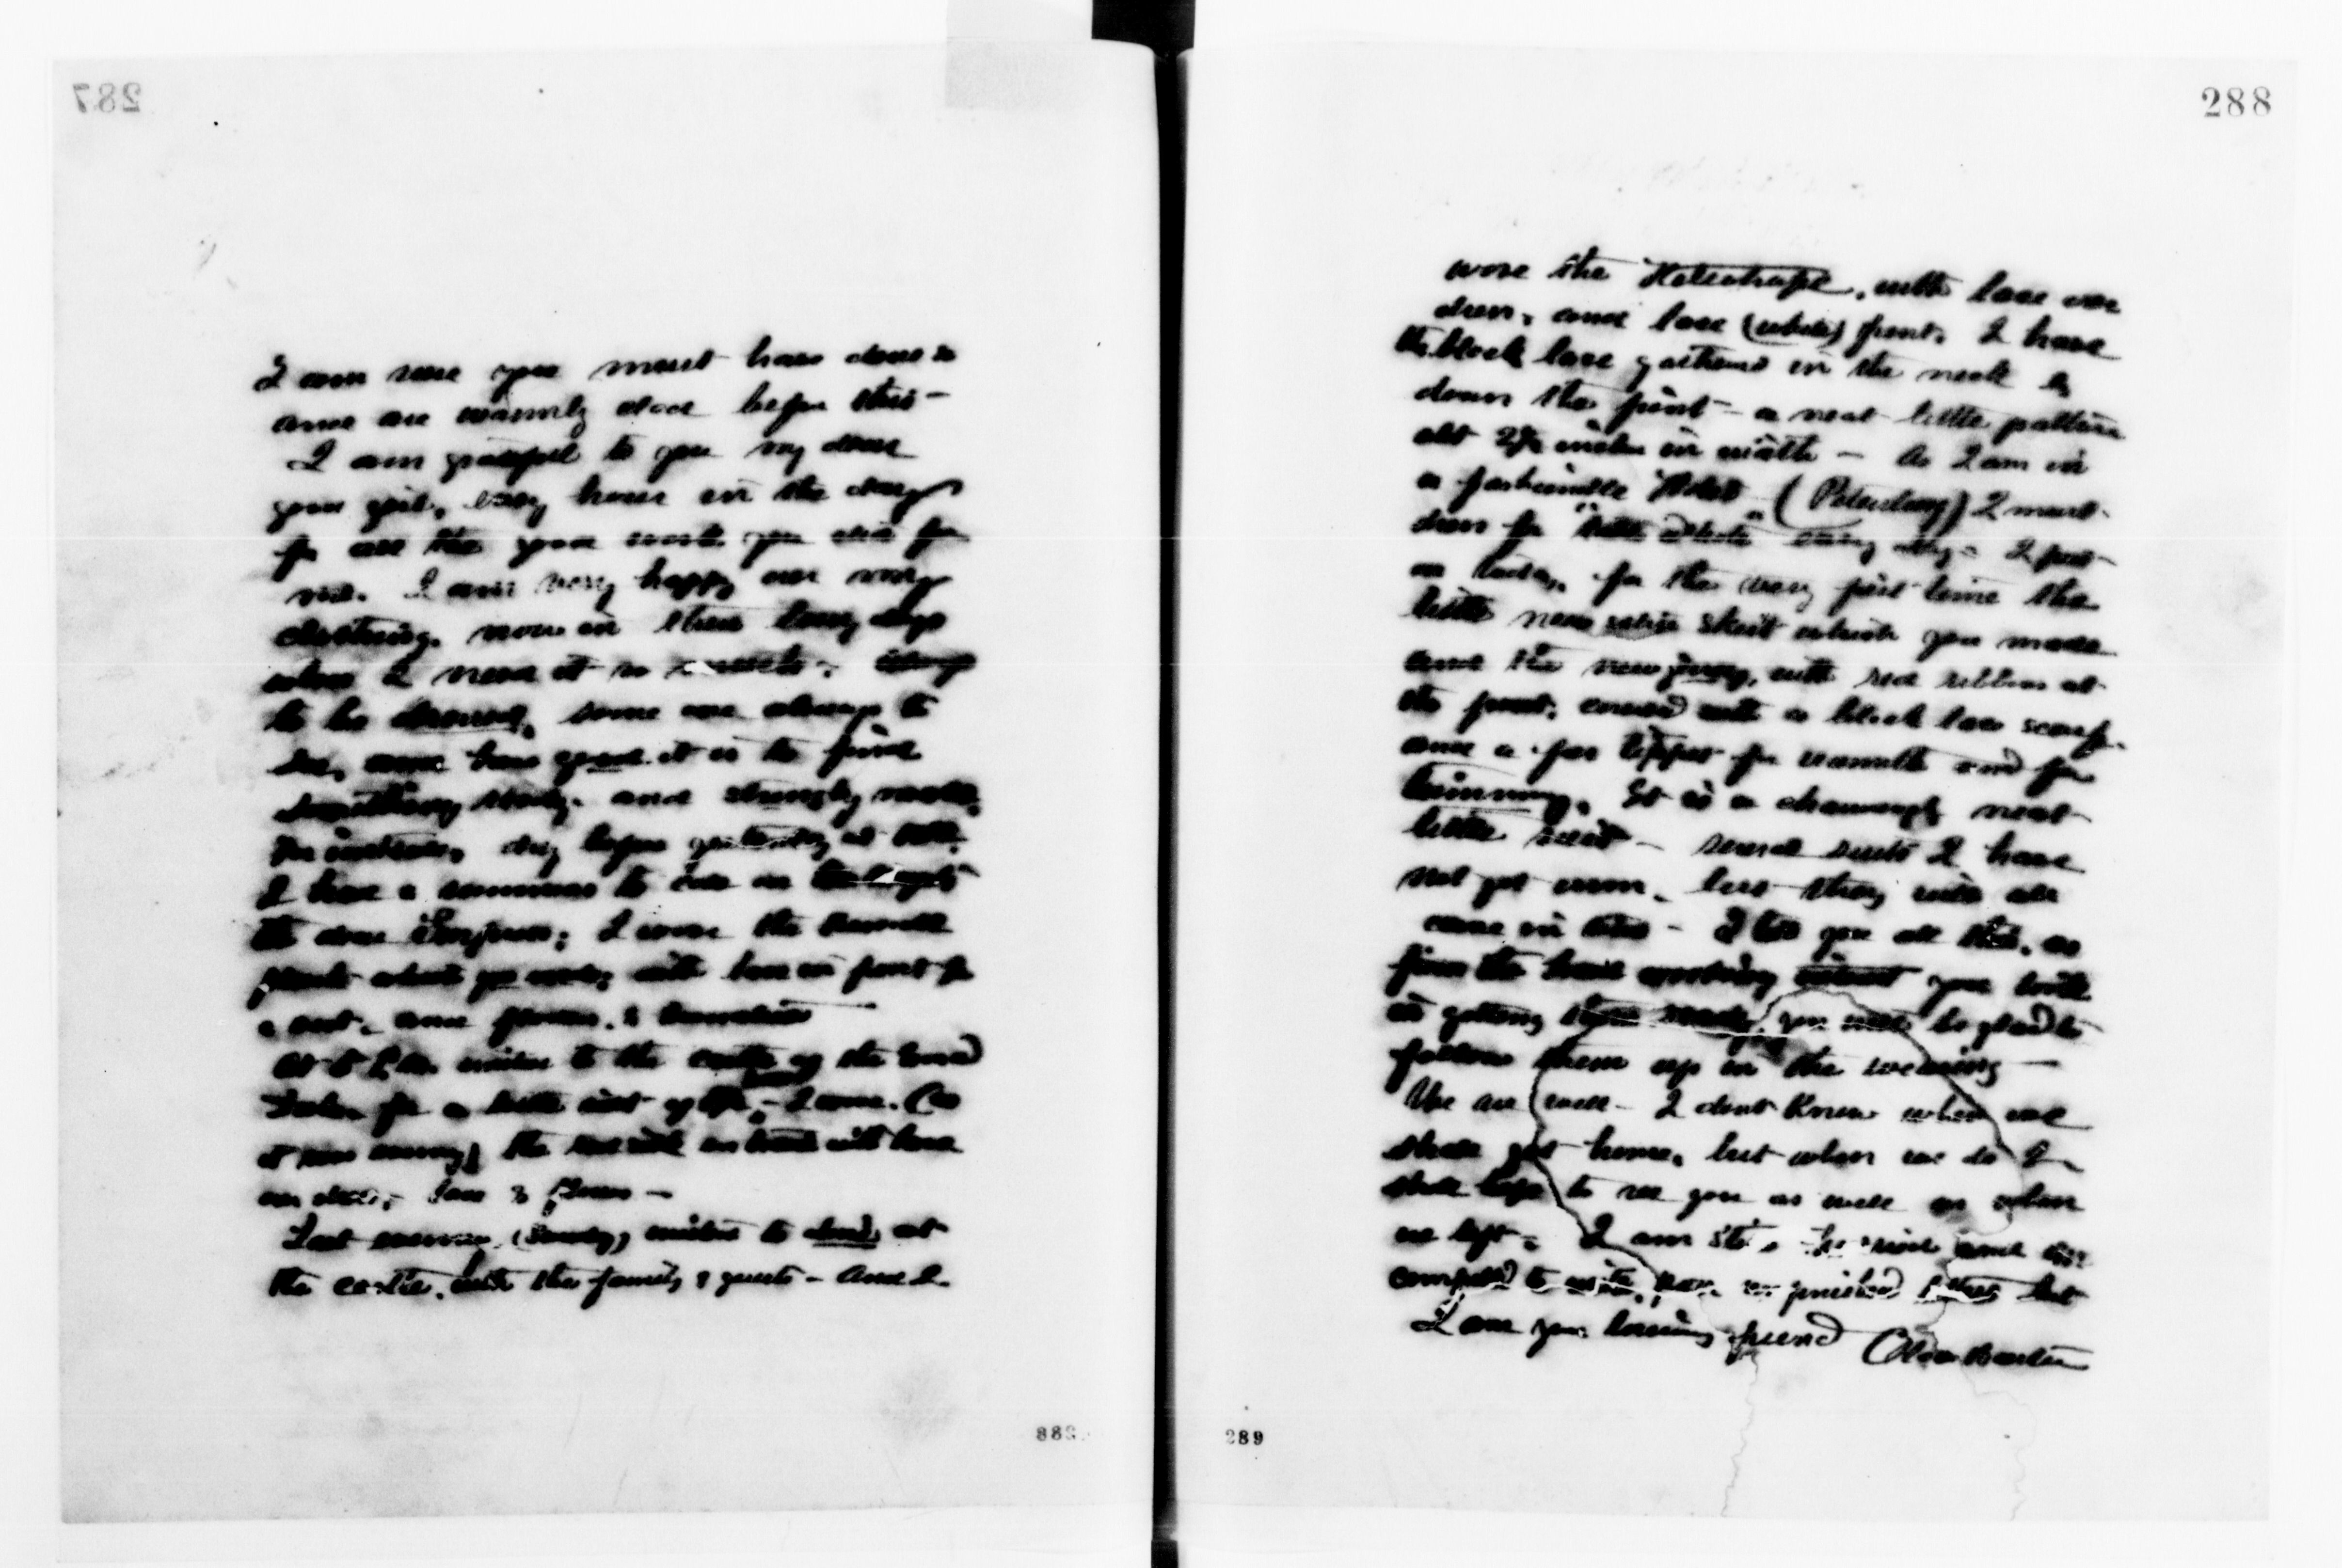 287
I am sure you must have done so
and are warmly clad before this -
I am grateful to you my dear
good girl, every hour in the day
for all the good work you did for
me. I am very happy over my
clothing. now in these busy days
when I need it so much; always
to be dressed, some one always to
see, and how good it is to find
something ready. and strongly made.
For instance, day before yesterday at
I have a summons to
the dear Empress; I wore the
which you made, with lace in front for
a vest. and flowers. &
At 5 P.M. invited to the castle of the Grand
Duke for a little visit of
at one evening, the on hand with lace
lace & flowers -
Last evening (Sunday) invited to dine, at
the castle. with the family & guests - And I
288
wore the Heliotrope, with lace over
dress, and lace (white) front. I have
the black lace gathered in the neck &
down the front - a neat little pattern
abt 2½ inches in width - As I am in
a fashionable Hotel - (Petersburg) I must
dress for "table d'hote" every day - I put
on today, for the very first time the
little new satin skirt which you made
and the new jersey, with red ribbon at
the front, covered with a black lace scarf.
and a fur tippet for warmth and for
trimming. It is a charmingly neat
little suit - several suits I have
not yet worn. but they will all
come in time - I tell you all this, as
from the hard working interest you took
in getting them made, you will be glad to
follow them up in the wearing -
We are well - I dont know when we
shall get home, but when we do I
shall hope to see you as well as when
we left - I am still and
compelled to write, but
I am your loving friend Clara Barton
288
289